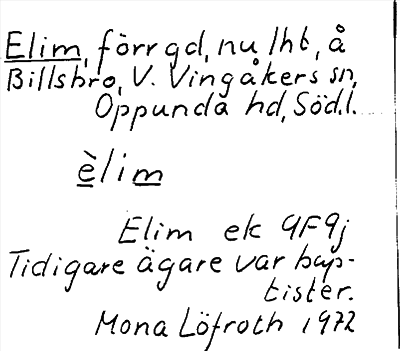 Elim, förr gd, nu lht, å
Billsbro, V. Vingåkers sn,
Oppunda hd, Södl.
èlim
Elim ek 9F9j
Tidigare ägare var bap-
tister.
Mona Löfroth 1972